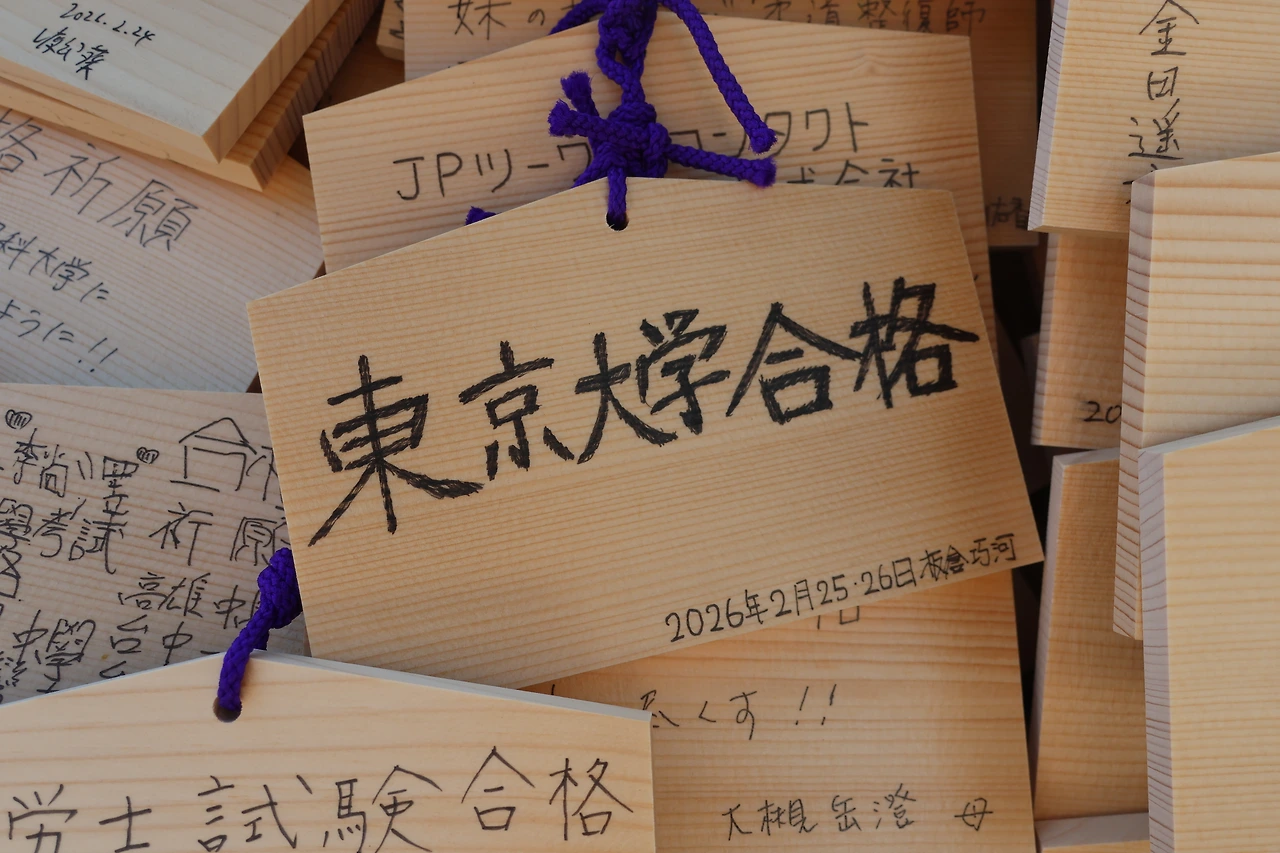 2026.2.24
妹の
柔道整復師
金田遥
JPツーワ
コンタクト
式会社
格祈願
科大学に
ように!!
東京大学合格
2026年2月25・26日 板倉巧河
合格
祈願
李尚澤
學考試
高雄中
中學台中一
尽くす!!
大槻岳澄 母
労士試験合格
20